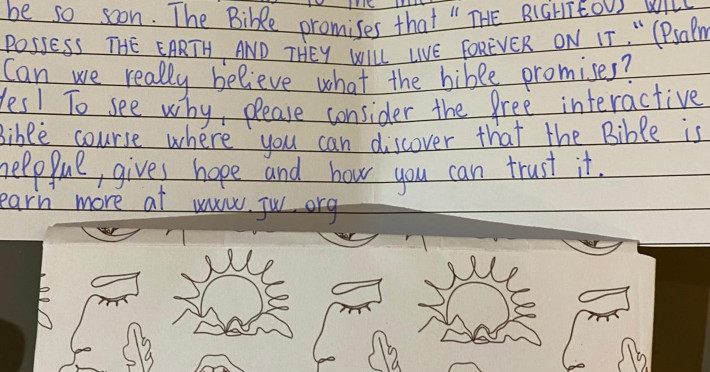 be so soon. The Bible promises that " THE RIGHTEOUS WILL
POSSESS THE EARTH AND THEY WILL LIVE FOREVER ON IT." (Psalm
Can we really believe what the bible promises?
Yes! To see why, please consider the free interactive
Bible course where you can discover that the Bible is
helpful, gives hope and how you can trust it.
earn more at www.jw.org